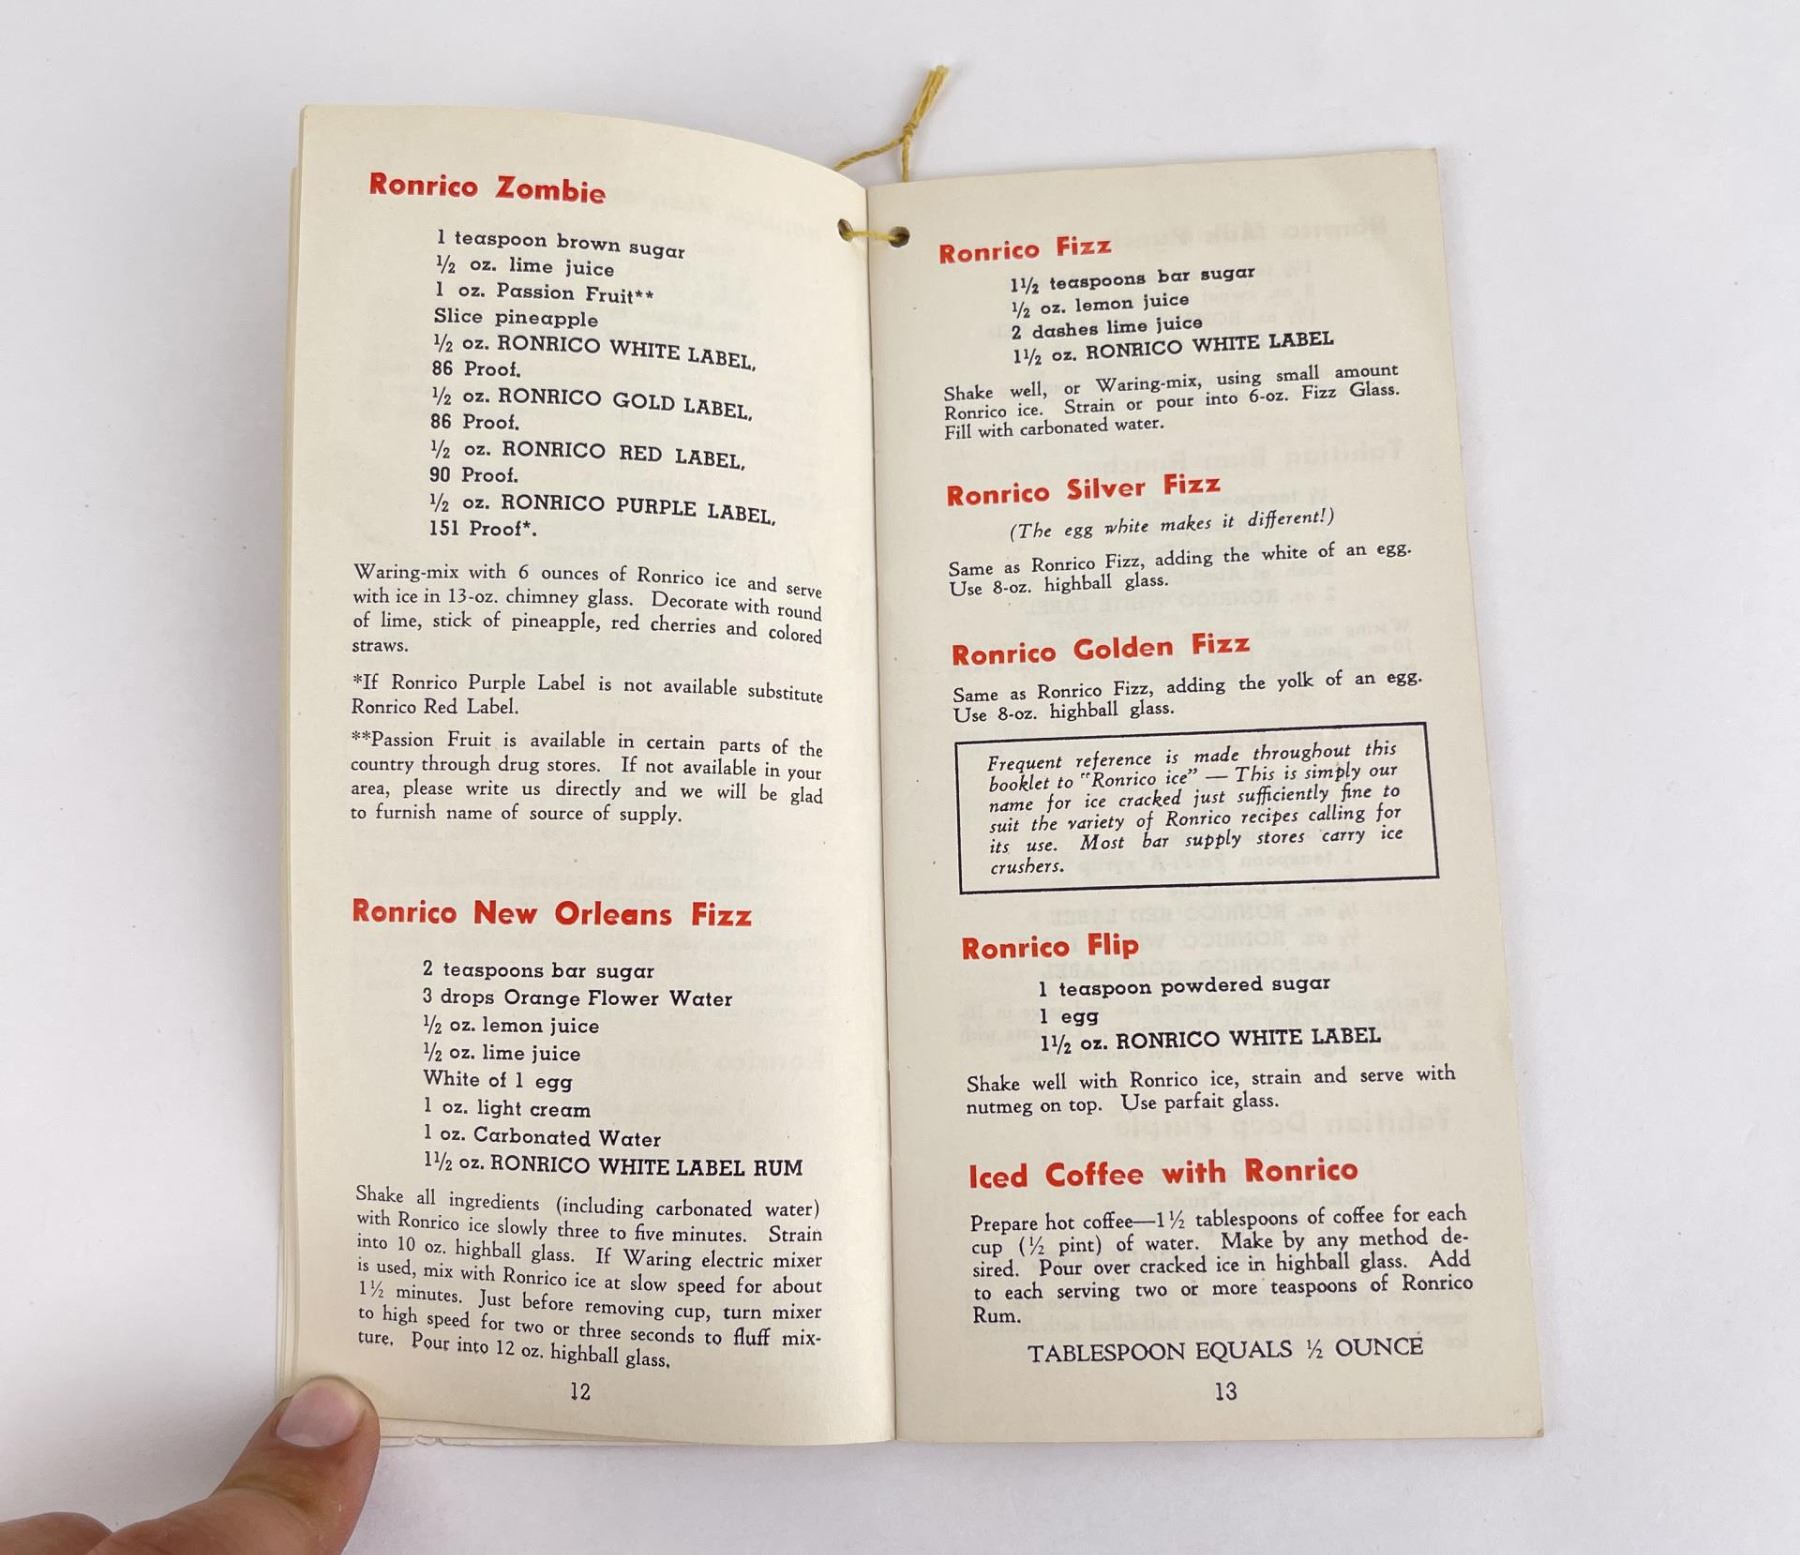 Ronrico Zombie
1 teaspoon brown sugar
½ oz. lime juice
1 oz. Passion Fruit**
Slice pineapple
½ oz. RONRICO WHITE LABEL,
86 Proof.
½ oz. RONRICO GOLD LABEL,
86 Proof.
½ oz. RONRICO RED LABEL,
90 Proof.
½ oz. RONRICO PURPLE LABEL,
151 Proof*.
Waring-mix with 6 ounces of Ronrico ice and serve
with ice in 13-oz. chimney glass. Decorate with round
of lime, stick of pineapple, red cherries and colored
straws.
*If Ronrico Purple Label is not available substitute
Ronrico Red Label.
**Passion Fruit is available in certain parts of the
country through drug stores. If not available in your
area, please write us directly and we will be glad
to furnish name of source of supply.
Ronrico New Orleans Fizz
2 teaspoons bar sugar
3 drops Orange Flower Water
½ oz. lemon juice
½ oz. lime juice
White of 1 egg
1 oz. light cream
1 oz. Carbonated Water
1½ oz. RONRICO WHITE LABEL RUM
Shake all ingredients (including carbonated water)
with Ronrico ice slowly three to five minutes. Strain
into 10 oz. highball glass. If Waring electric mixer
is used, mix with Ronrico ice at slow speed for about
1½ minutes. Just before removing cup, turn mixer
to high speed for two or three seconds to fluff mix-
ture. Pour into 12 oz. highball glass.
12
Ronrico Fizz
1½ teaspoons bar sugar
½ oz. lemon juice
2 dashes lime juice
1½ oz. RONRICO WHITE LABEL
Shake well, or Waring-mix, using small amount
Ronrico ice. Strain or pour into 6-oz. Fizz Glass.
Fill with carbonated water.
Ronrico Silver Fizz
(The egg white makes it different!)
Same as Ronrico Fizz, adding the white of an egg.
Use 8-oz. highball glass.
Ronrico Golden Fizz
Same as Ronrico Fizz, adding the yolk of an egg.
Use 8-oz. highball glass.
Frequent reference is made throughout this
booklet to "Ronrico ice" — This is simply our
name for ice cracked just sufficiently fine to
suit the variety of Ronrico recipes calling for
its use. Most bar supply stores carry ice
crushers.
Ronrico Flip
1 teaspoon powdered sugar
1 egg
1½ oz. RONRICO WHITE LABEL
Shake well with Ronrico ice, strain and serve with
nutmeg on top. Use parfait glass.
Iced Coffee with Ronrico
Prepare hot coffee—1½ tablespoons of coffee for each
cup (½ pint) of water. Make by any method de-
sired. Pour over cracked ice in highball glass. Add
to each serving two or more teaspoons of Ronrico
Rum.
TABLESPOON EQUALS ½ OUNCE
13